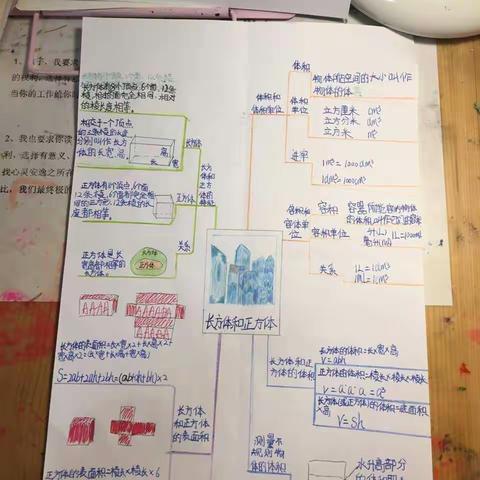 长方体有8个顶点,6个面,12条
棱,相对的面完全相同,相对
的棱长度相等。
相交于一个顶点
的三条棱的长度
分别叫作长方
体的长宽高
高
长
宽
长方体
正方体有8个顶点,6个面
12条棱,6个面都完全相
同的正方形,12条棱的长
度都相等。
正方体
长方体和正方体的特征
关系
正方体是长
宽高都相等的
长方体。
长方体
正方体
长方体和正方体
体积和
体积单位
体积
物体所占空间的大小叫作
物体的体积
体积
单位
立方厘米 cm³
立方分米 dm³
立方米 m³
进率
1m³=1000dm³
1dm³=1000cm³
容积和
容积单位
容积
容积单位
升(L)
毫升(ml)
1L=1000ml
关系
1L=1dm³
1ML=1cm³
长方体的表面积=长×宽×2+长×高×2+
宽×高×2=(长×宽+长×高+宽×高)×2
S=2ab+2ah+2bh=(ab+ah+bh)×2
长方体
和正方体
的表面积
正方体的表面积=棱长×棱长×6
长方体和正
方体的体积
长方体的体积=长×宽×高
V=abh
正方体的体积=棱长×棱长×棱长
V=a·a·a=a³
长方体(或正方体)的体积=底面积
×高
V=Sh
测量不
规则物
体的体积
水升高部分
1、
我要求
的权利,选择有
当你的工作给你
2、我也要求你读
利,选择有意义、
找心灵安逸之所在
比,我们最终极的